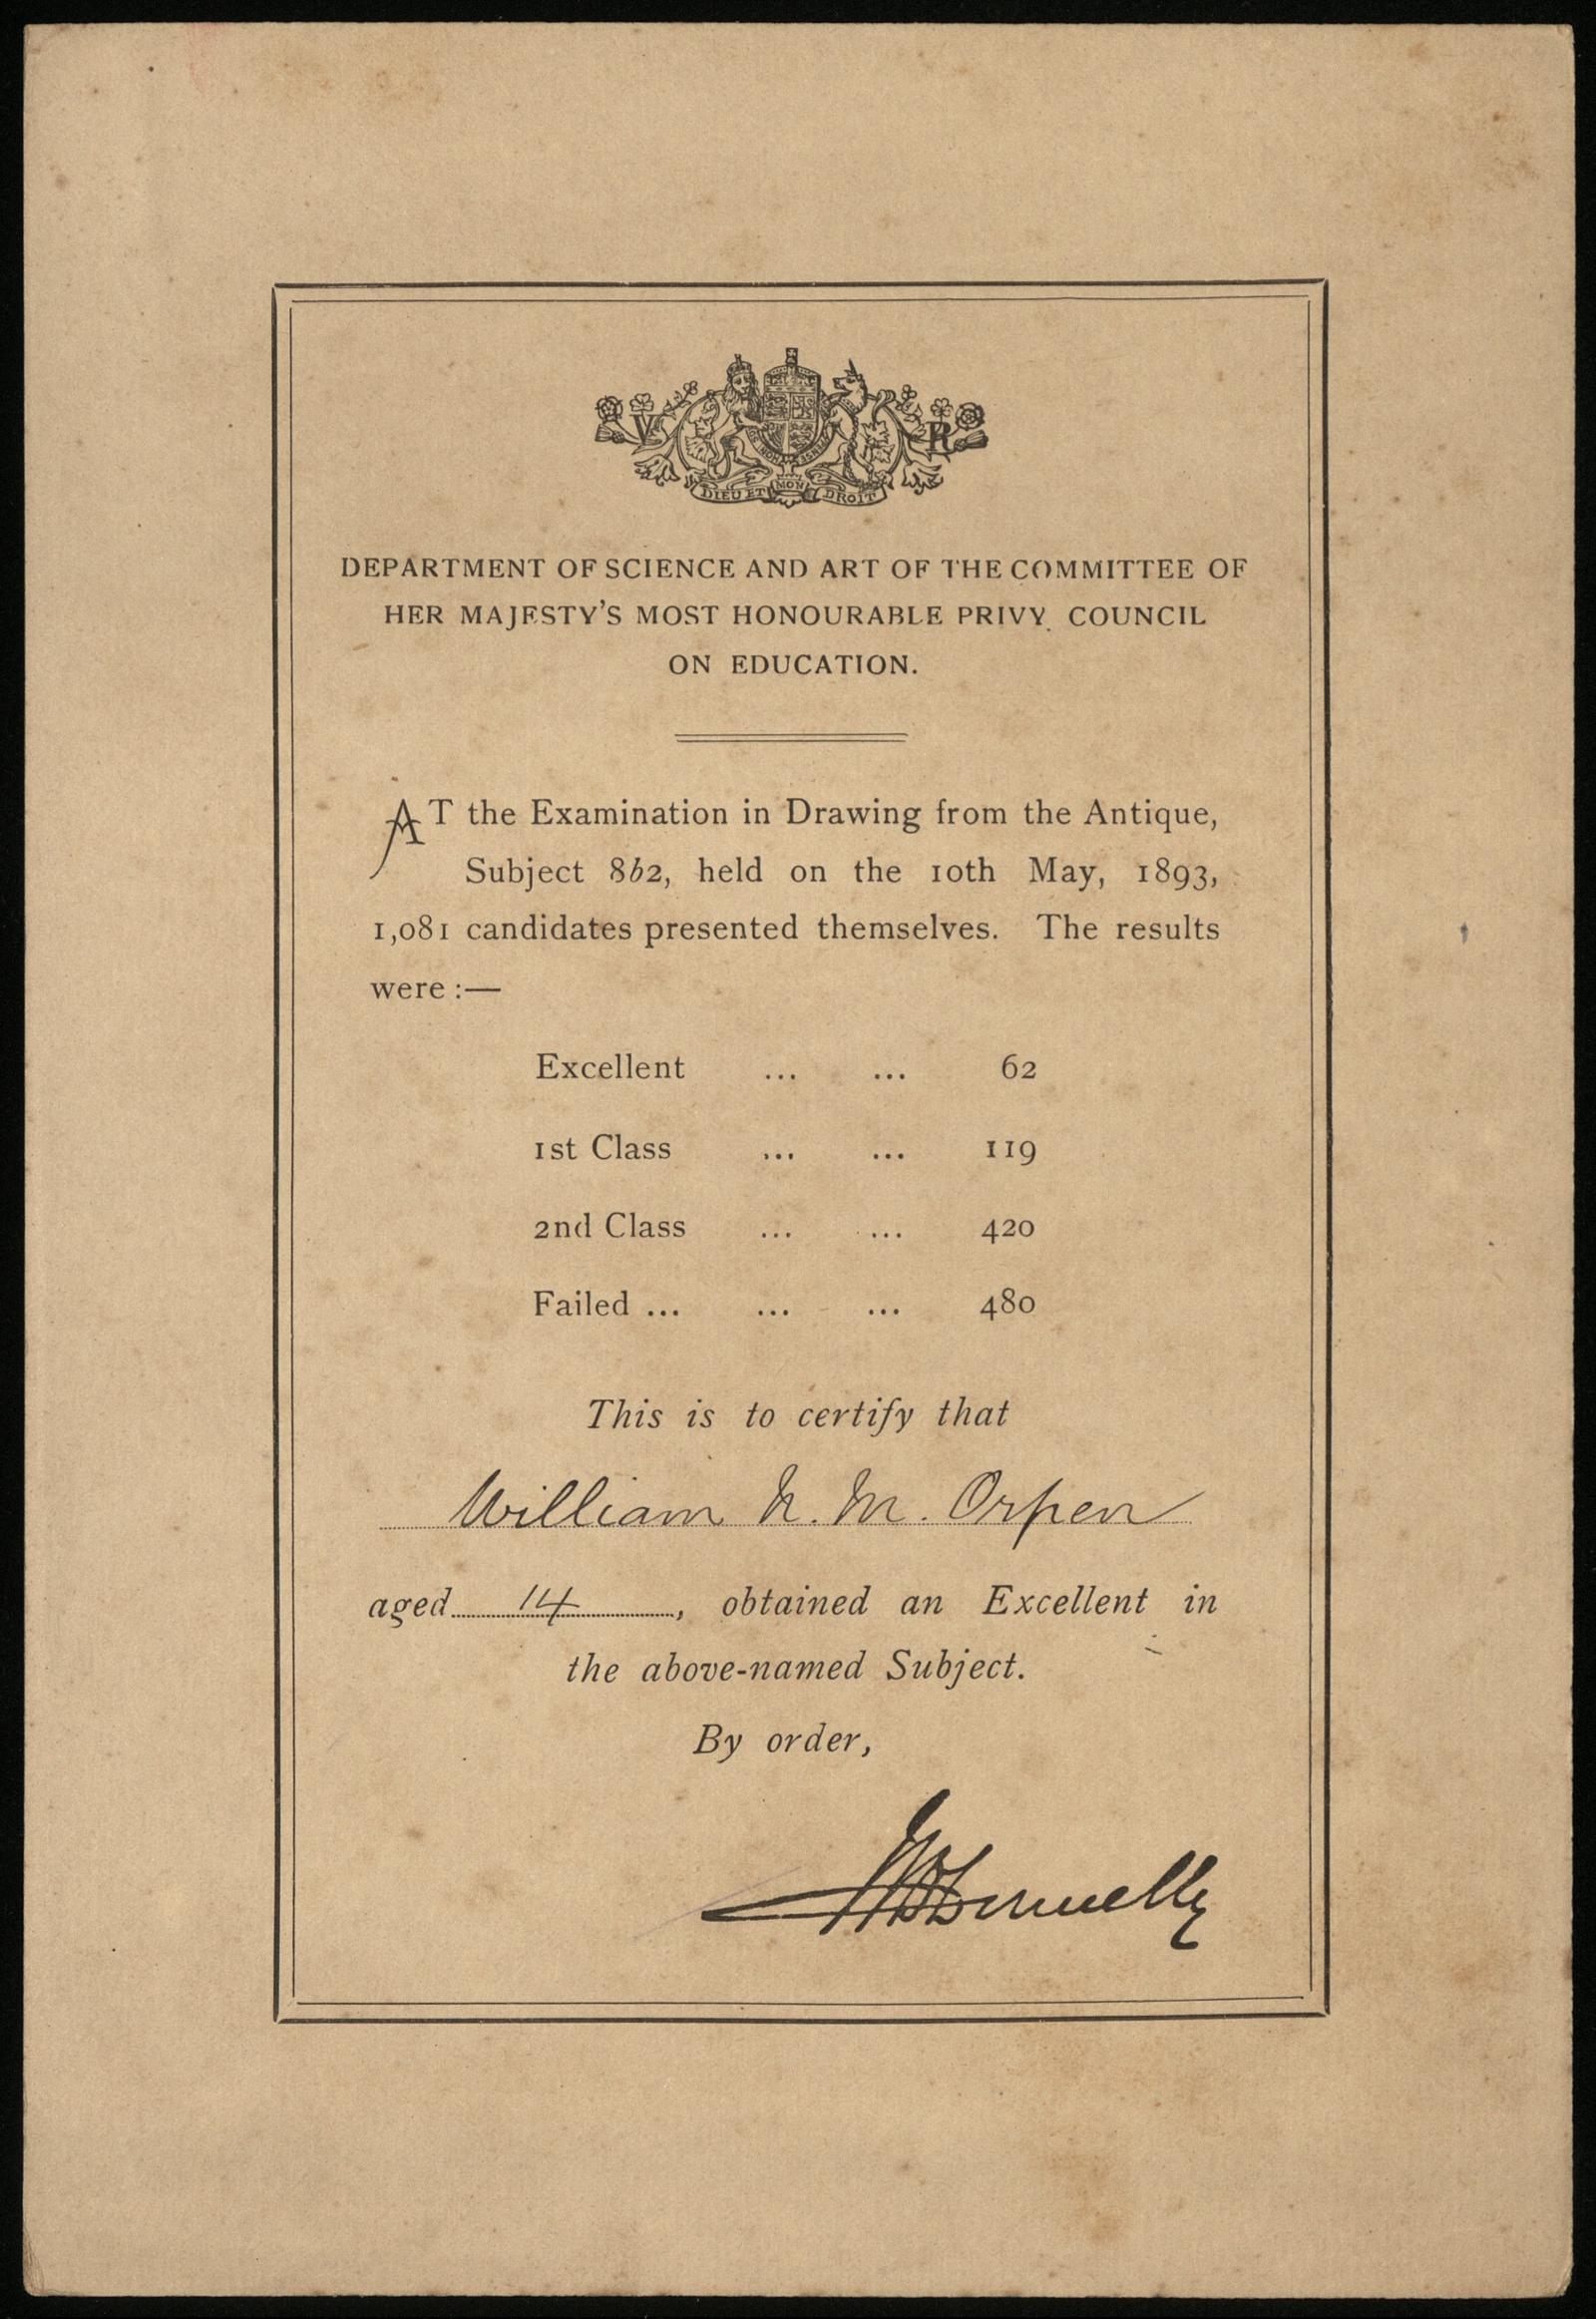 V R
DIEU ET MON DROIT
DEPARTMENT OF SCIENCE AND ART OF THE COMMITTEE OF
HER MAJESTY'S MOST HONOURABLE PRIVY COUNCIL
ON EDUCATION.
AT the Examination in Drawing from the Antique,
Subject 8b2, held on the 10th May, 1893,
1,081 candidates presented themselves. The results
were :—
Excellent ... ... 62
1st Class ... ... 119
2nd Class ... ... 420
Failed ... ... ... 480
This is to certify that
William N. M. Orpen
aged 14, obtained an Excellent in
the above-named Subject.
By order,
Donnelly